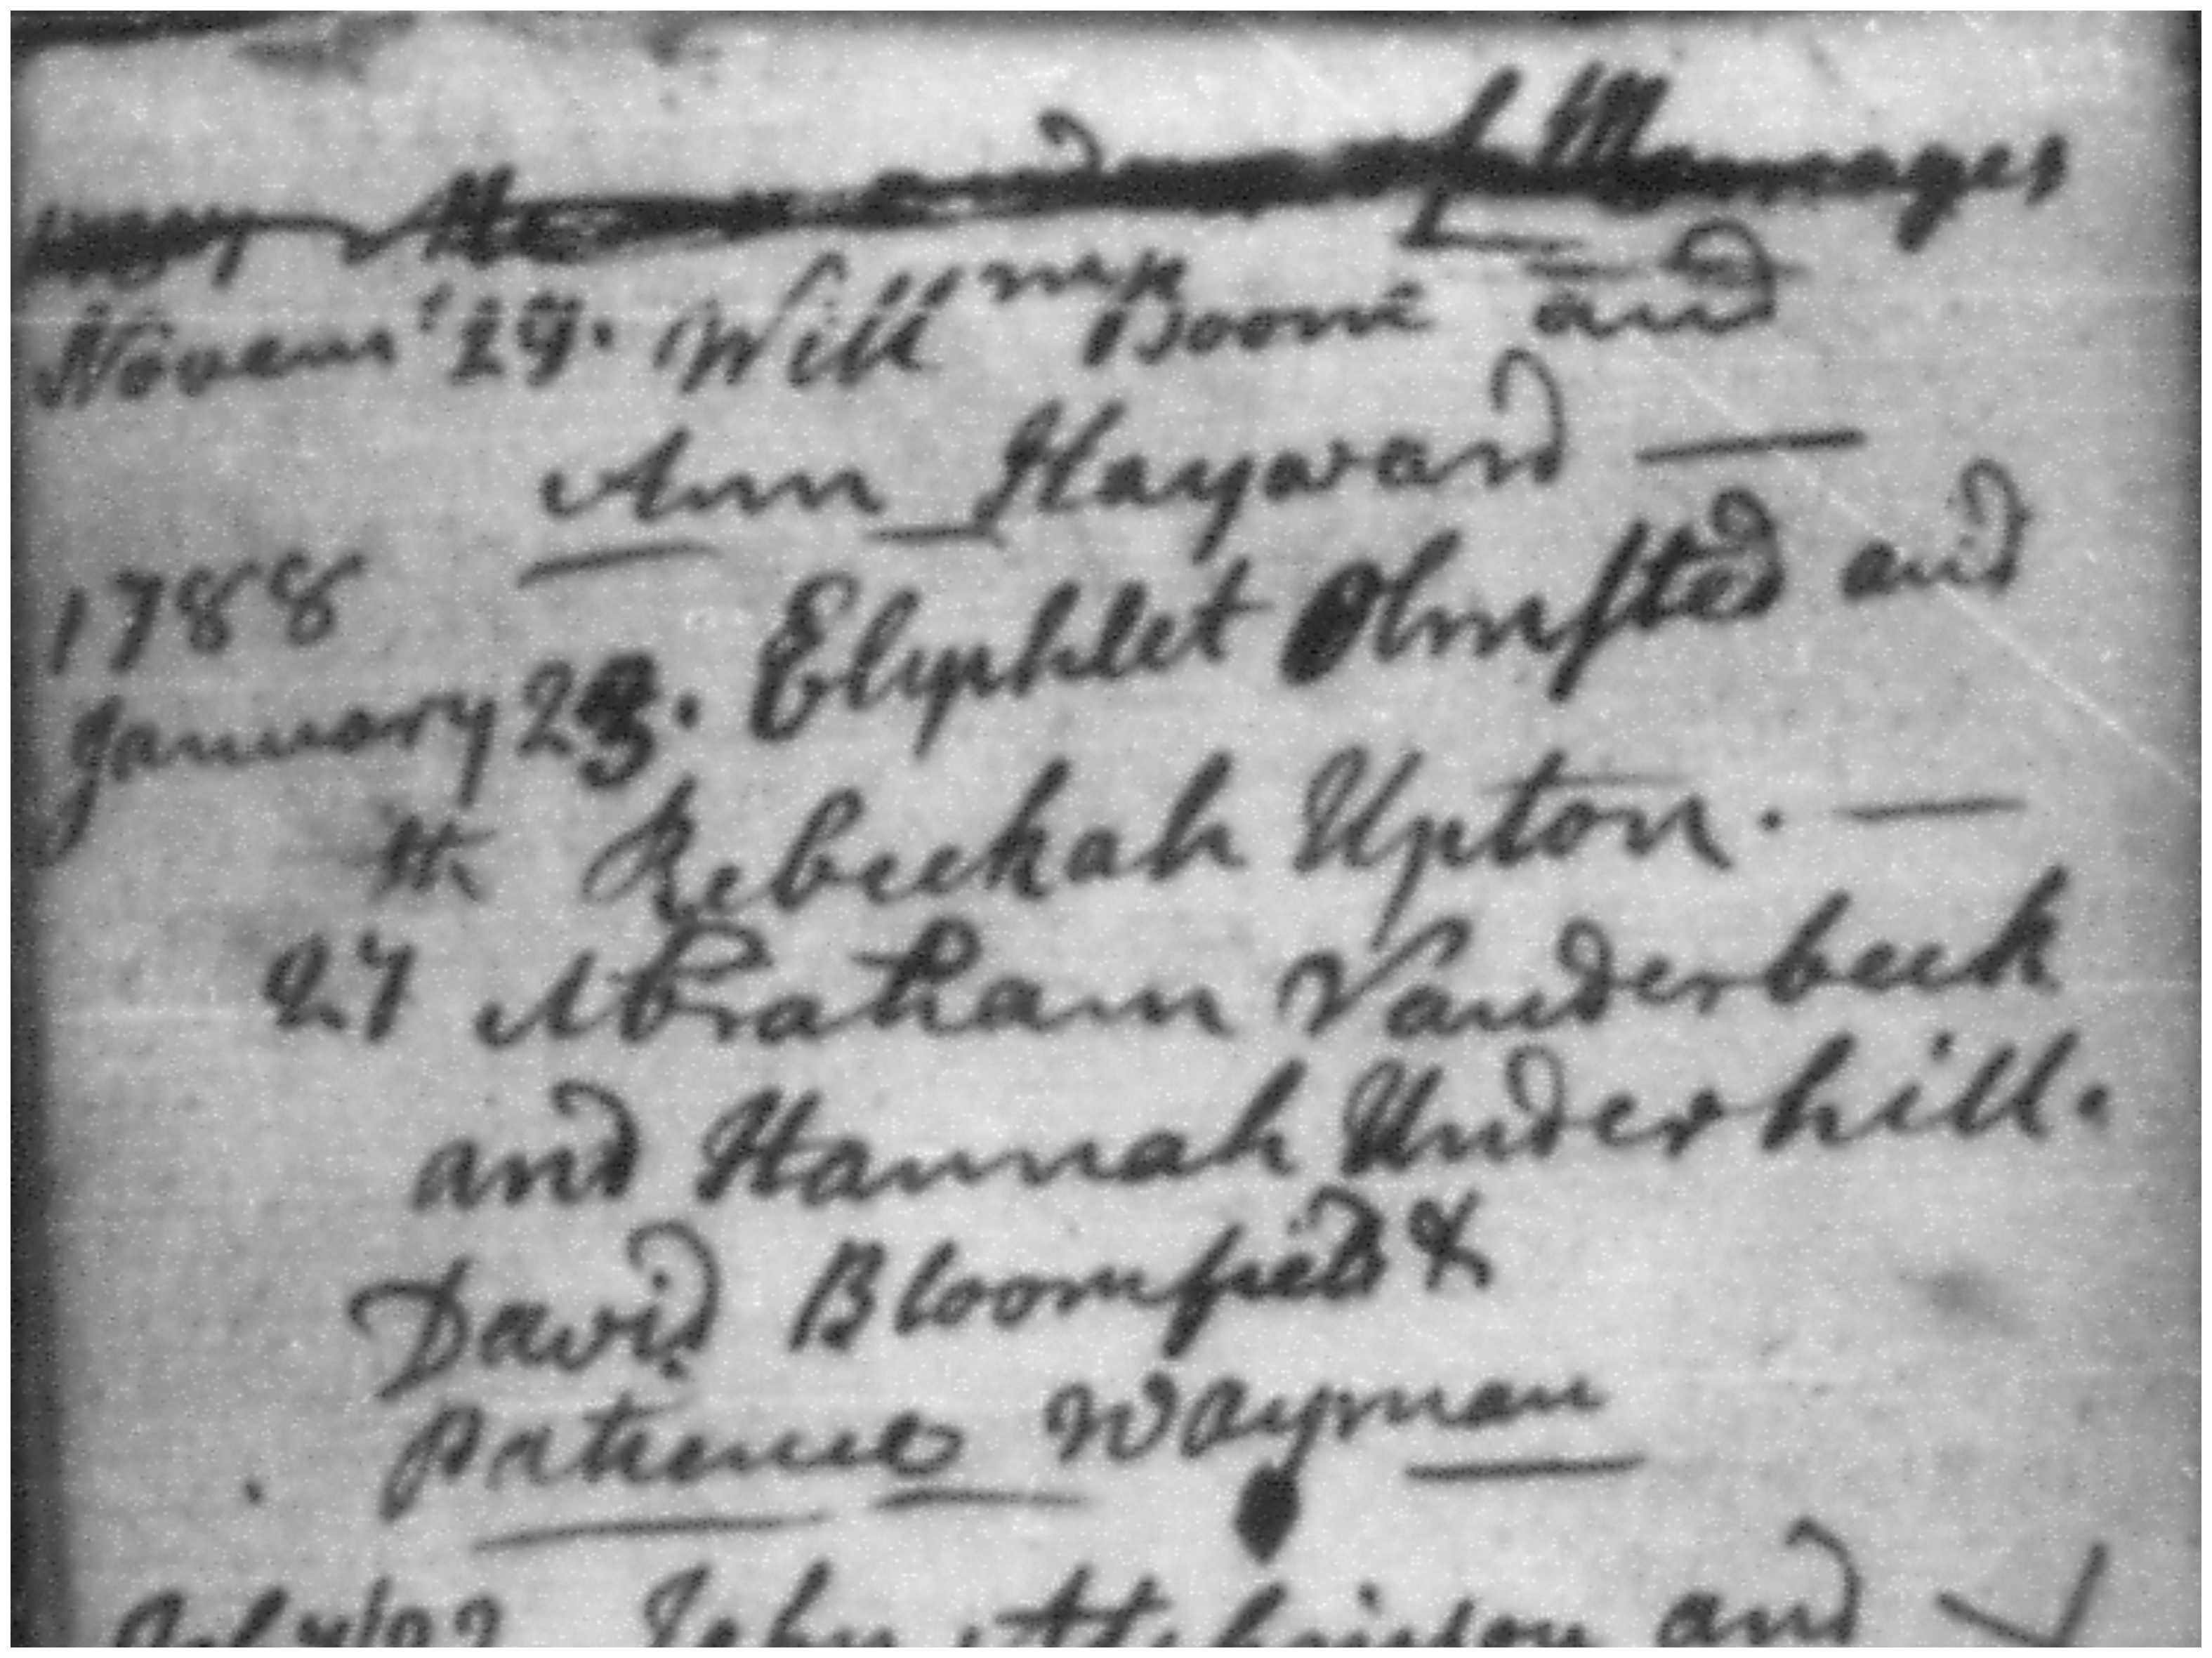 Marriages
Novem' 29. Will Boone and
Ann Hayward —
1788
January 23. Elyphlet Olmsted and
th Rebeckah Upton. —
27 Abraham Vanderbeek
and Hannah Underhill.
David Bloomfield &
patience Wayman
John and